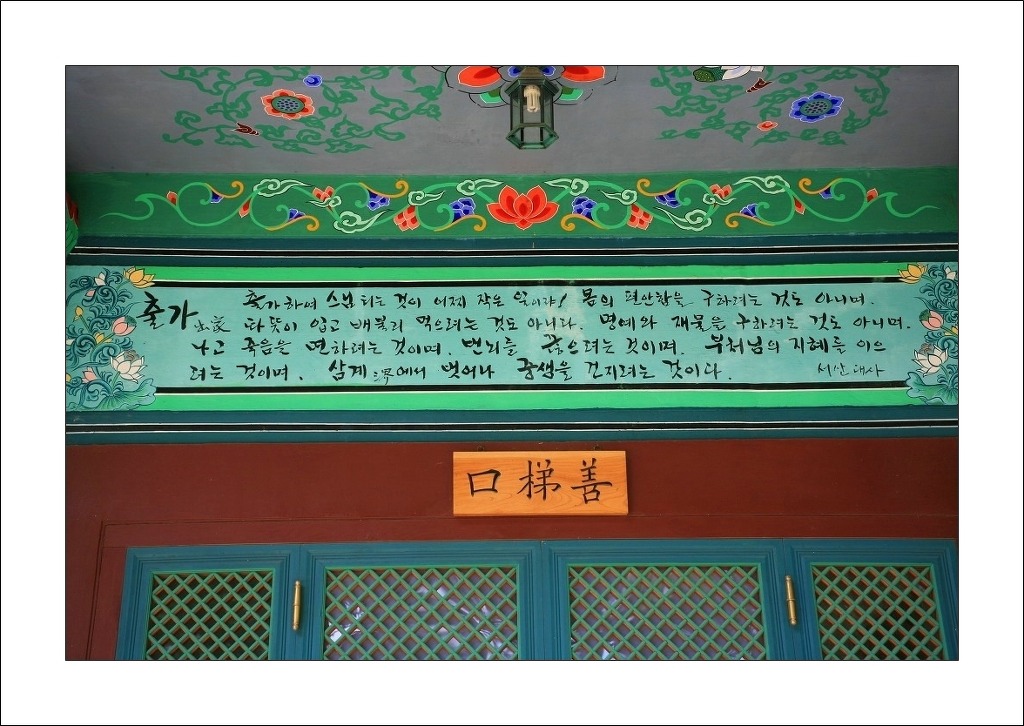 출가 出家
출가하여 스님 되는 것이 어찌 작은 일이랴! 몸의 편안함을 구하려는 것도 아니며.
따뜻이 입고 배불리 먹으려는 것도 아니다. 명예와 재물을 구하려는 것도 아니며.
나고 죽음을 면하려는 것이며. 번뇌를 끊으려는 것이며. 부처님의 지혜를 이으
려는 것이며. 삼계三界에서 벗어나 중생을 건지려는 것이다. 서산대사
口梯善